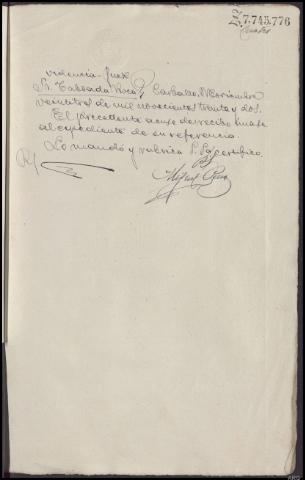 Z.7.745.776
videncia-Juez
Sr. Taboada Roca, Carballo, Noviembre
veintitres de mil novecientos treinta y dos.
El precedente acuse de recibo únase
al expediente de su referencia
Lo mandó y rubrica S. Sª; certifico.
Miguel